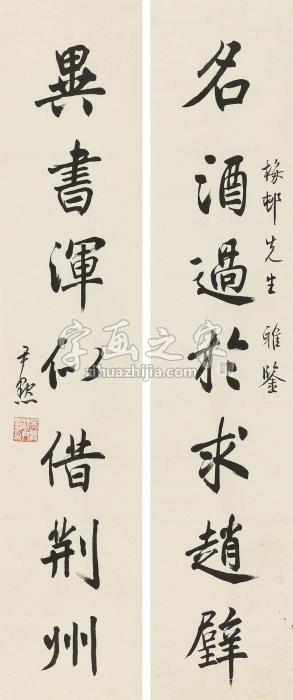 名酒過於求趙璧
梅邨先生雅鑒
異書渾似借荆州
尹默
字画之家
sihuazhijia.com